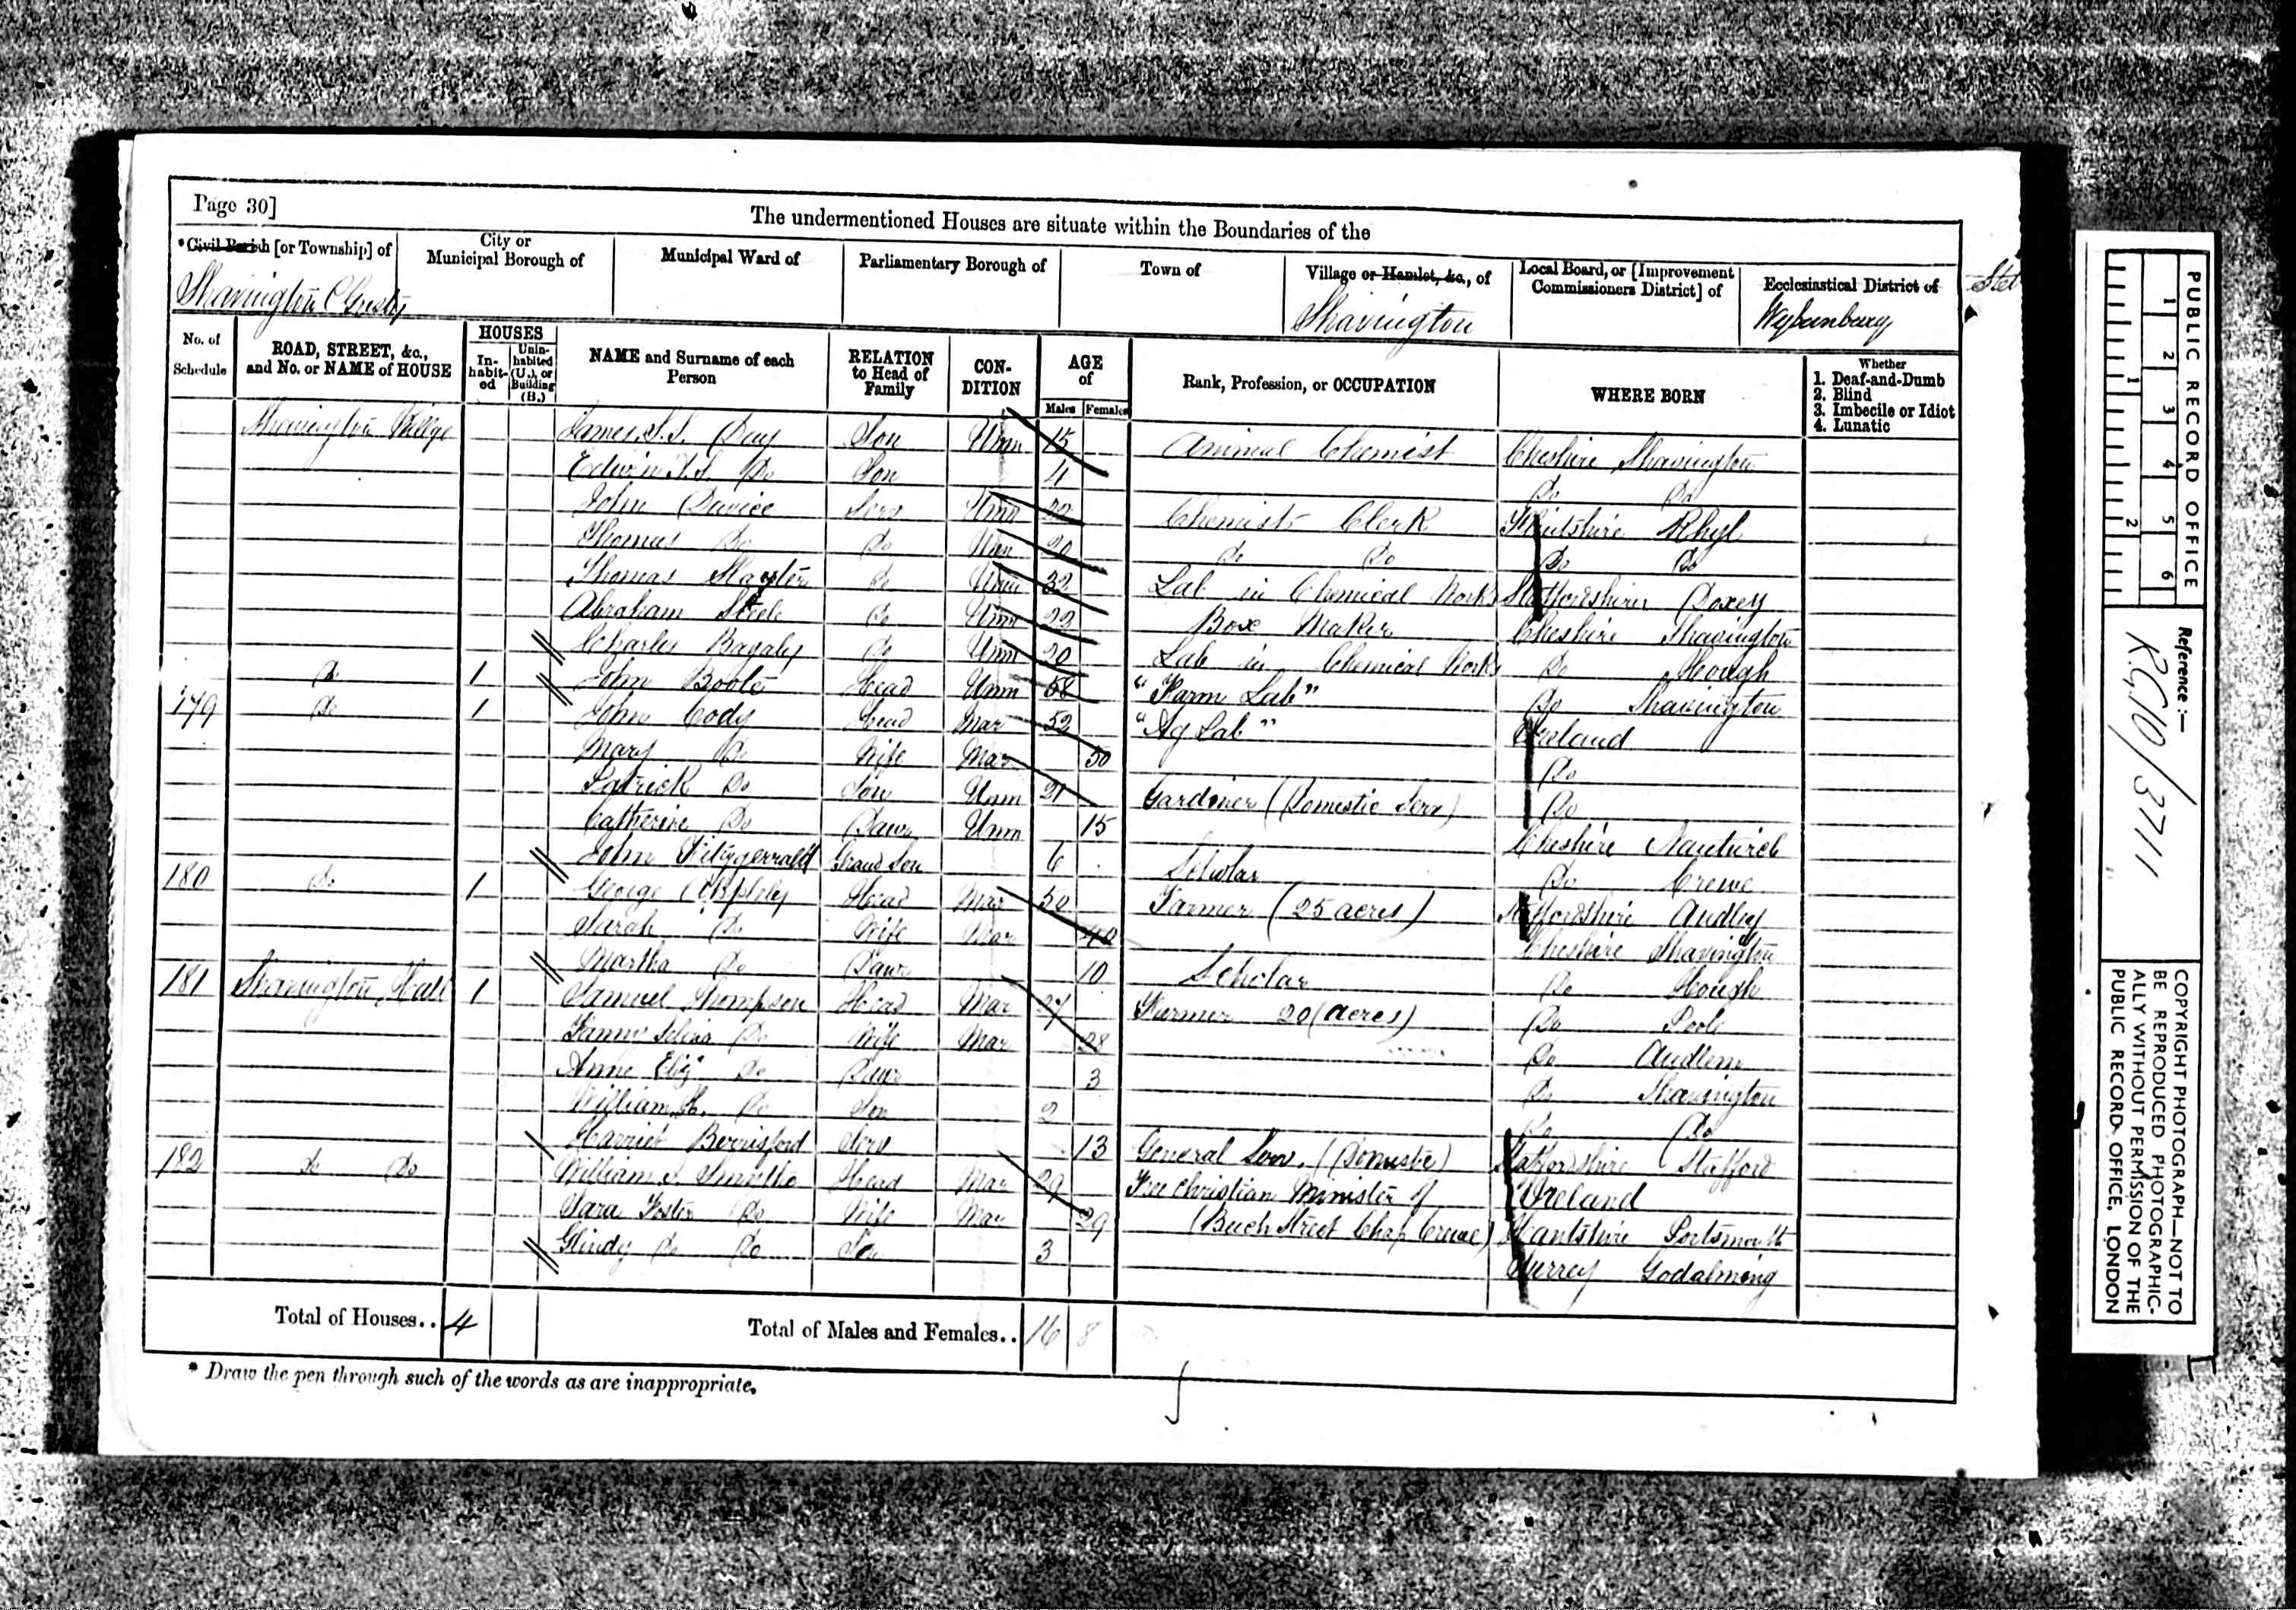 Page 30]
The undermentioned Houses are situate within the Boundaries of the
*Civil Parish [or Township] of
City or Municipal Borough of
Municipal Ward of
Parliamentary Borough of
Town of
Village or Hamlet, &c., of
Local Board, or [Improvement Commissioners District] of
Ecclesiastical District of
Shavington C Gresty
Shavington
Wybunbury
No. of Schedule
ROAD, STREET, &c., and No. or NAME of HOUSE
HOUSES
In-habit-ed
Unin-habited (U.), or Building (B.)
NAME and Surname of each Person
RELATION to Head of Family
CON-DITION
AGE of
Males Females
Rank, Profession, or OCCUPATION
WHERE BORN
Whether
1. Deaf-and-Dumb
2. Blind
3. Imbecile or Idiot
4. Lunatic
Shavington Village James S. S. Day Son Unm 15 Animal Chemist Cheshire Shavington
Edwin Do Son 4 Do Do
John Davice Serv Unm Chemists Clerk Flintshire Rhyl
Thomas Do Do Unm 20 Do Do Do Do
Thomas Do Unm 32 Lab in Chemical Works Staffordshire Doxey
Abraham Steele Do Unm 22 Box Maker Cheshire Shavington
Charles Bagaley Do Unm 20 Lab in Chemical Works Do Hough
Do 1 John Boote Head Unm 58 "Farm Lab" Do Shavington
179 Do 1 John Cody Head Mar 52 "Ag Lab" Ireland
Mary Do Wife Mar 50 Do
Patrick Do Son Unm 21 Gardiner (Domestic Serv) Do
Catherine Do Dawr Unm 15 Cheshire Nantwich
John Fitzgerrald Grand Son 6 Scholar Do Crewe
180 Do 1 George Head Mar 50 Farmer (25 acres) Staffordshire Audley
Sarah Do Wife Mar 40 Cheshire Shavington
Martha Do Dawr 10 Scholar Do Hough
181 Shavington Hall 1 Samuel Thompson Head Mar 27 Farmer 20 (acres) Do Poole
Selina Do Wife Mar 28 Do Audlem
Anne Eliz Do Dawr 3 Do Shavington
William H. Do Son 2 Do Do
Harriet Berrisford Serv 13 General Serv. (Domestic) Staffordshire Stafford
182 Do Do William Head Mar 29 Free Christian Minister of Ireland
Sara Foster Do Wife Mar 29 (Beech Street Chap Crewe) Hantshire Portsmouth
Do Do Son 3 Surrey Godalming
Total of Houses.. 4
Total of Males and Females.. 16 8
* Draw the pen through such of the words as are inappropriate.
PUBLIC RECORD OFFICE
1 2 3 4 5 6
1 2
Reference :—
R.G.10/3711
COPYRIGHT PHOTOGRAPH—NOT TO
BE REPRODUCED PHOTOGRAPHIC-
ALLY WITHOUT PERMISSION OF THE
PUBLIC RECORD OFFICE, LONDON